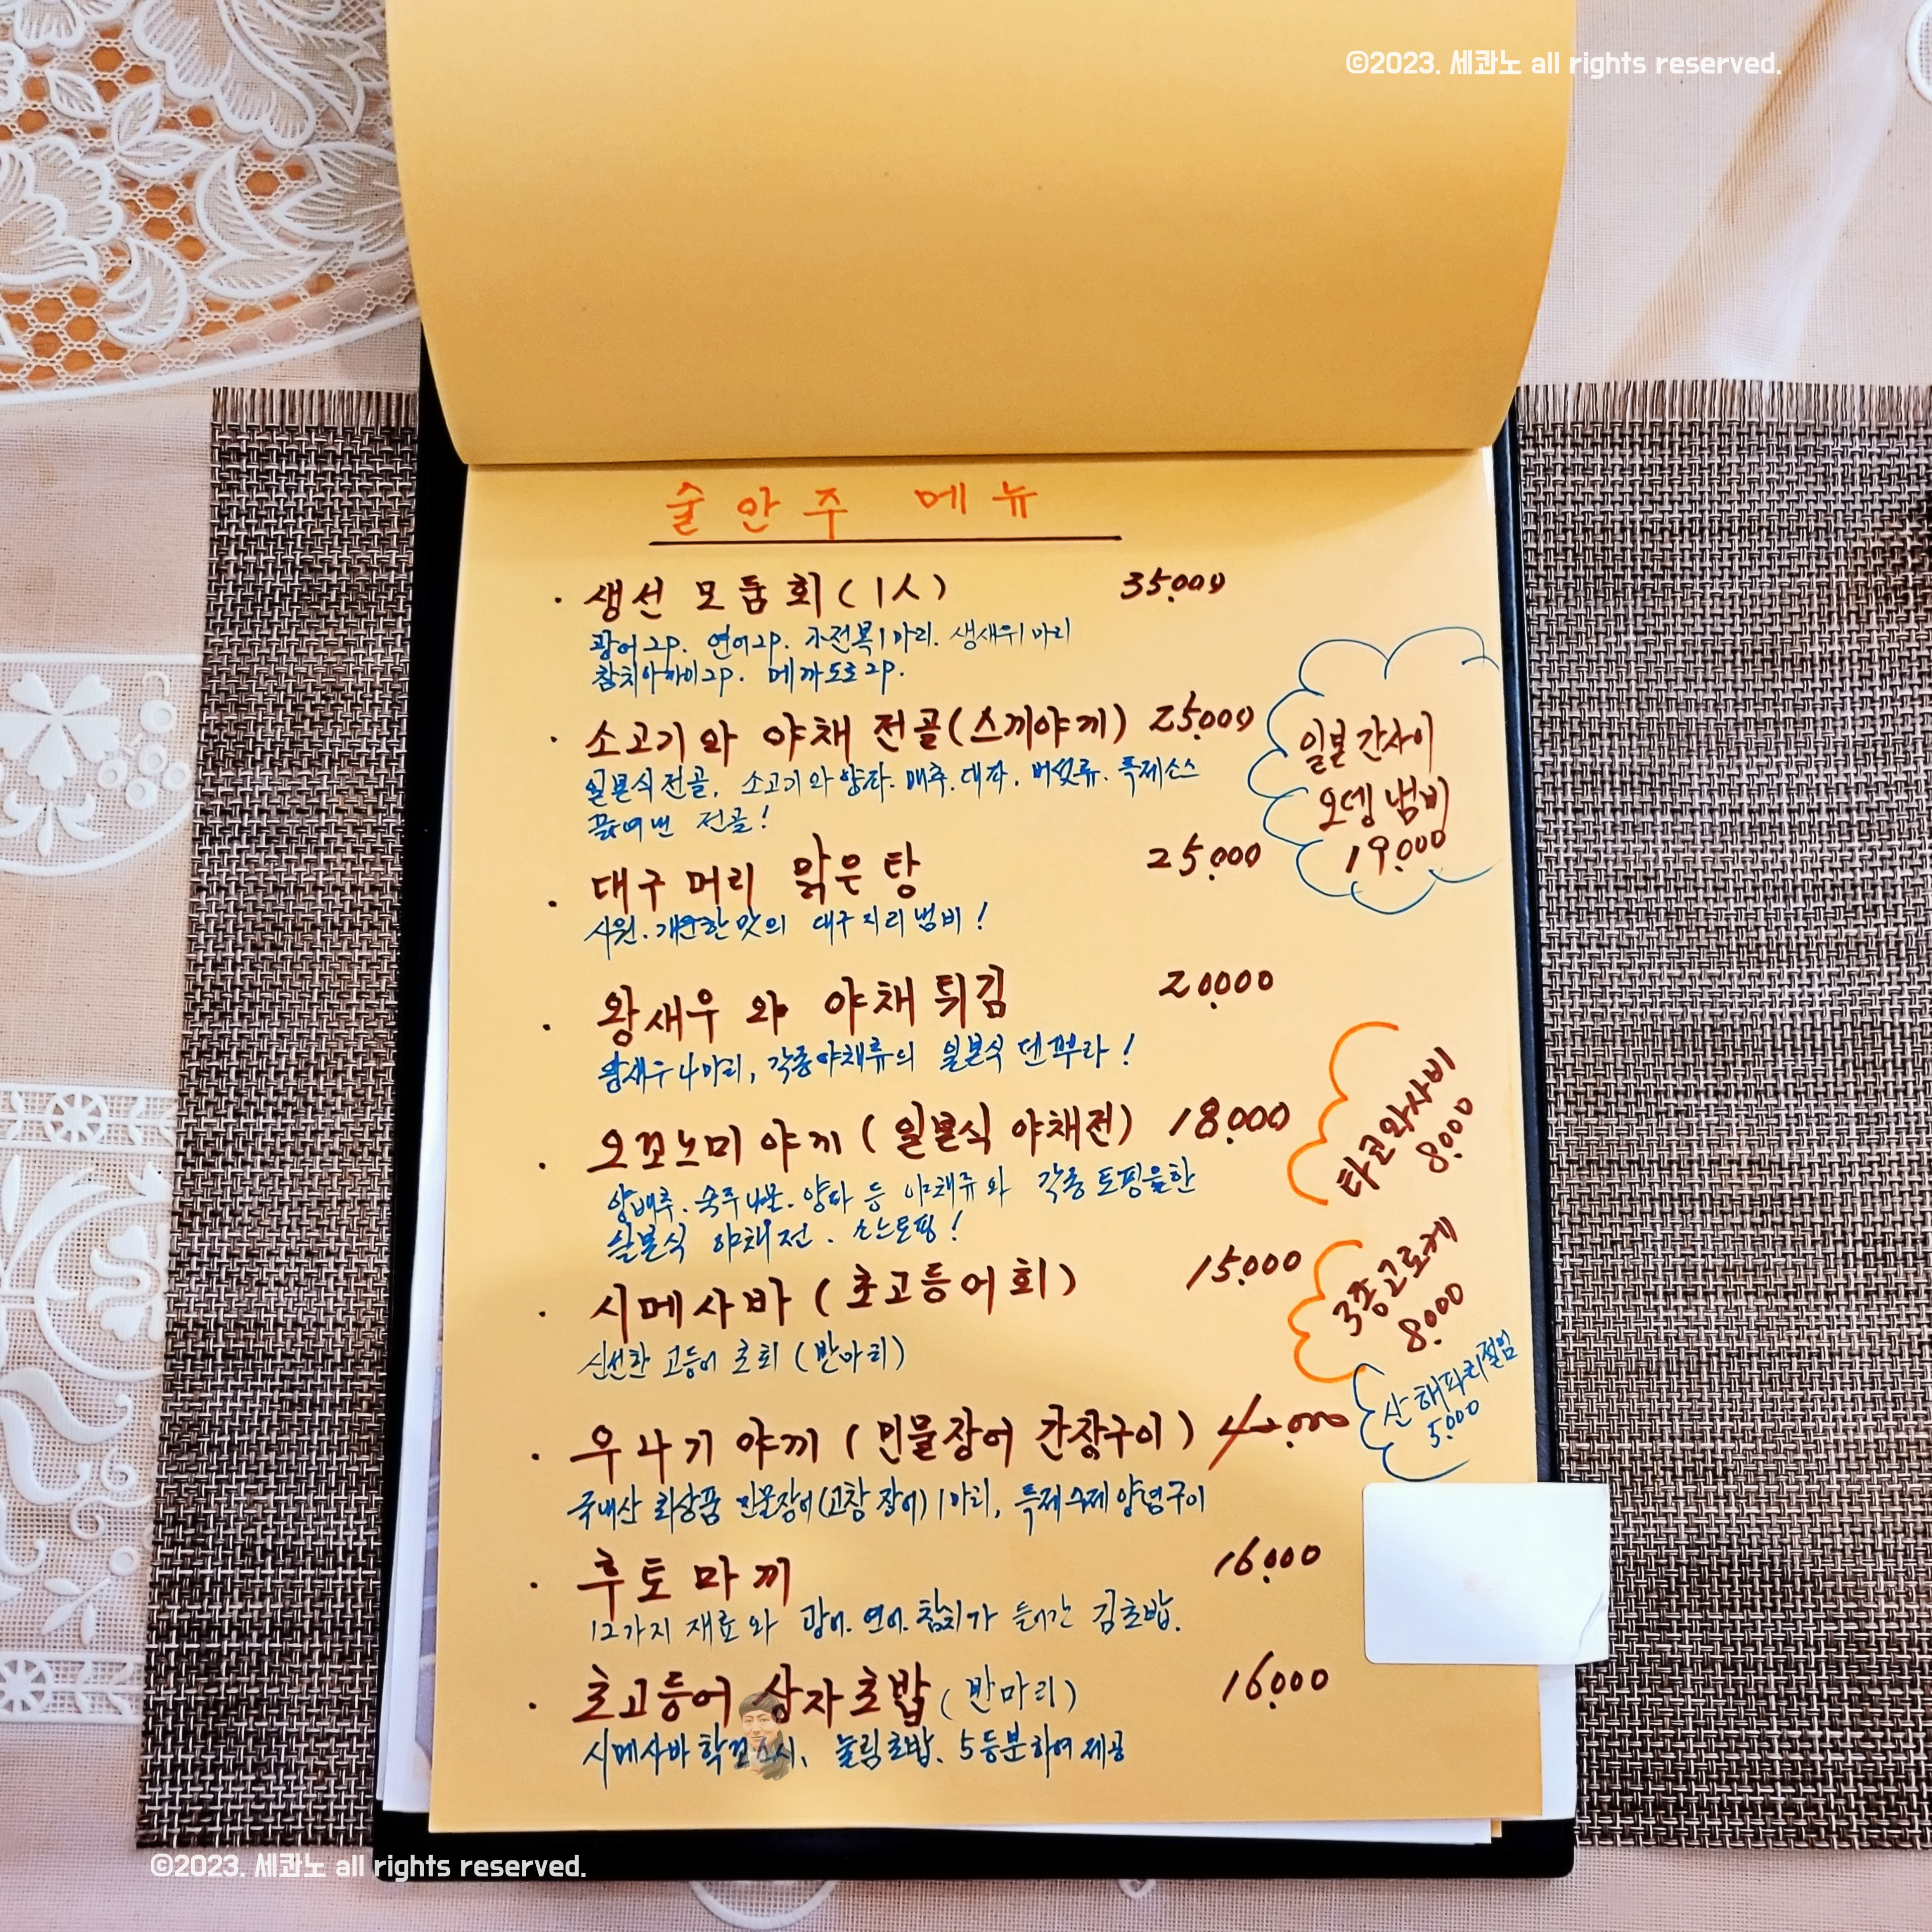 ©2023. 세콴노 all rights reserved.
술안주 메뉴
· 생선 모둠회(1人) 35,000
광어2p. 연어2p. 전복1마리. 생새우1마리
참치아까미2p. 메까도로2p.
· 소고기와 야채 전골(스끼야끼) 25,000
일본식 전골, 소고기와 양파. 배추. 대파. 버섯류. 특제소스
끓여낸 전골!
일본 간사이
오뎅 냄비
19,000
· 대구머리 맑은탕 25,000
시원. 개운한 맛의 대구지리냄비!
· 왕새우와 야채튀김 20,000
왕새우4마리, 각종야채류의 일본식 덴뿌라!
타코와사비
8,000
· 오꼬노미야끼(일본식 야채전) 18,000
양배추. 숙주나물. 양파 등 야채류와 각종 토핑을한
일본식 야채전.
3종고로케
8,000
· 시메사바(초고등어회) 15,000
신선한 고등어 초회(반마리)
산해파리절임
5,000
· 우나기야끼(민물장어 간장구이)
국내산 최상품 민물장어(고창 장어)1마리, 특제수제양념구이
· 후토마끼 16,000
12가지 재료와 광어. 연어. 참치가 들어간 김초밥.
· 초고등어 상자초밥(반마리) 16,000
시메사바 눌림초밥. 5등분하여 제공
©2023. 세콴노 all rights reserved.